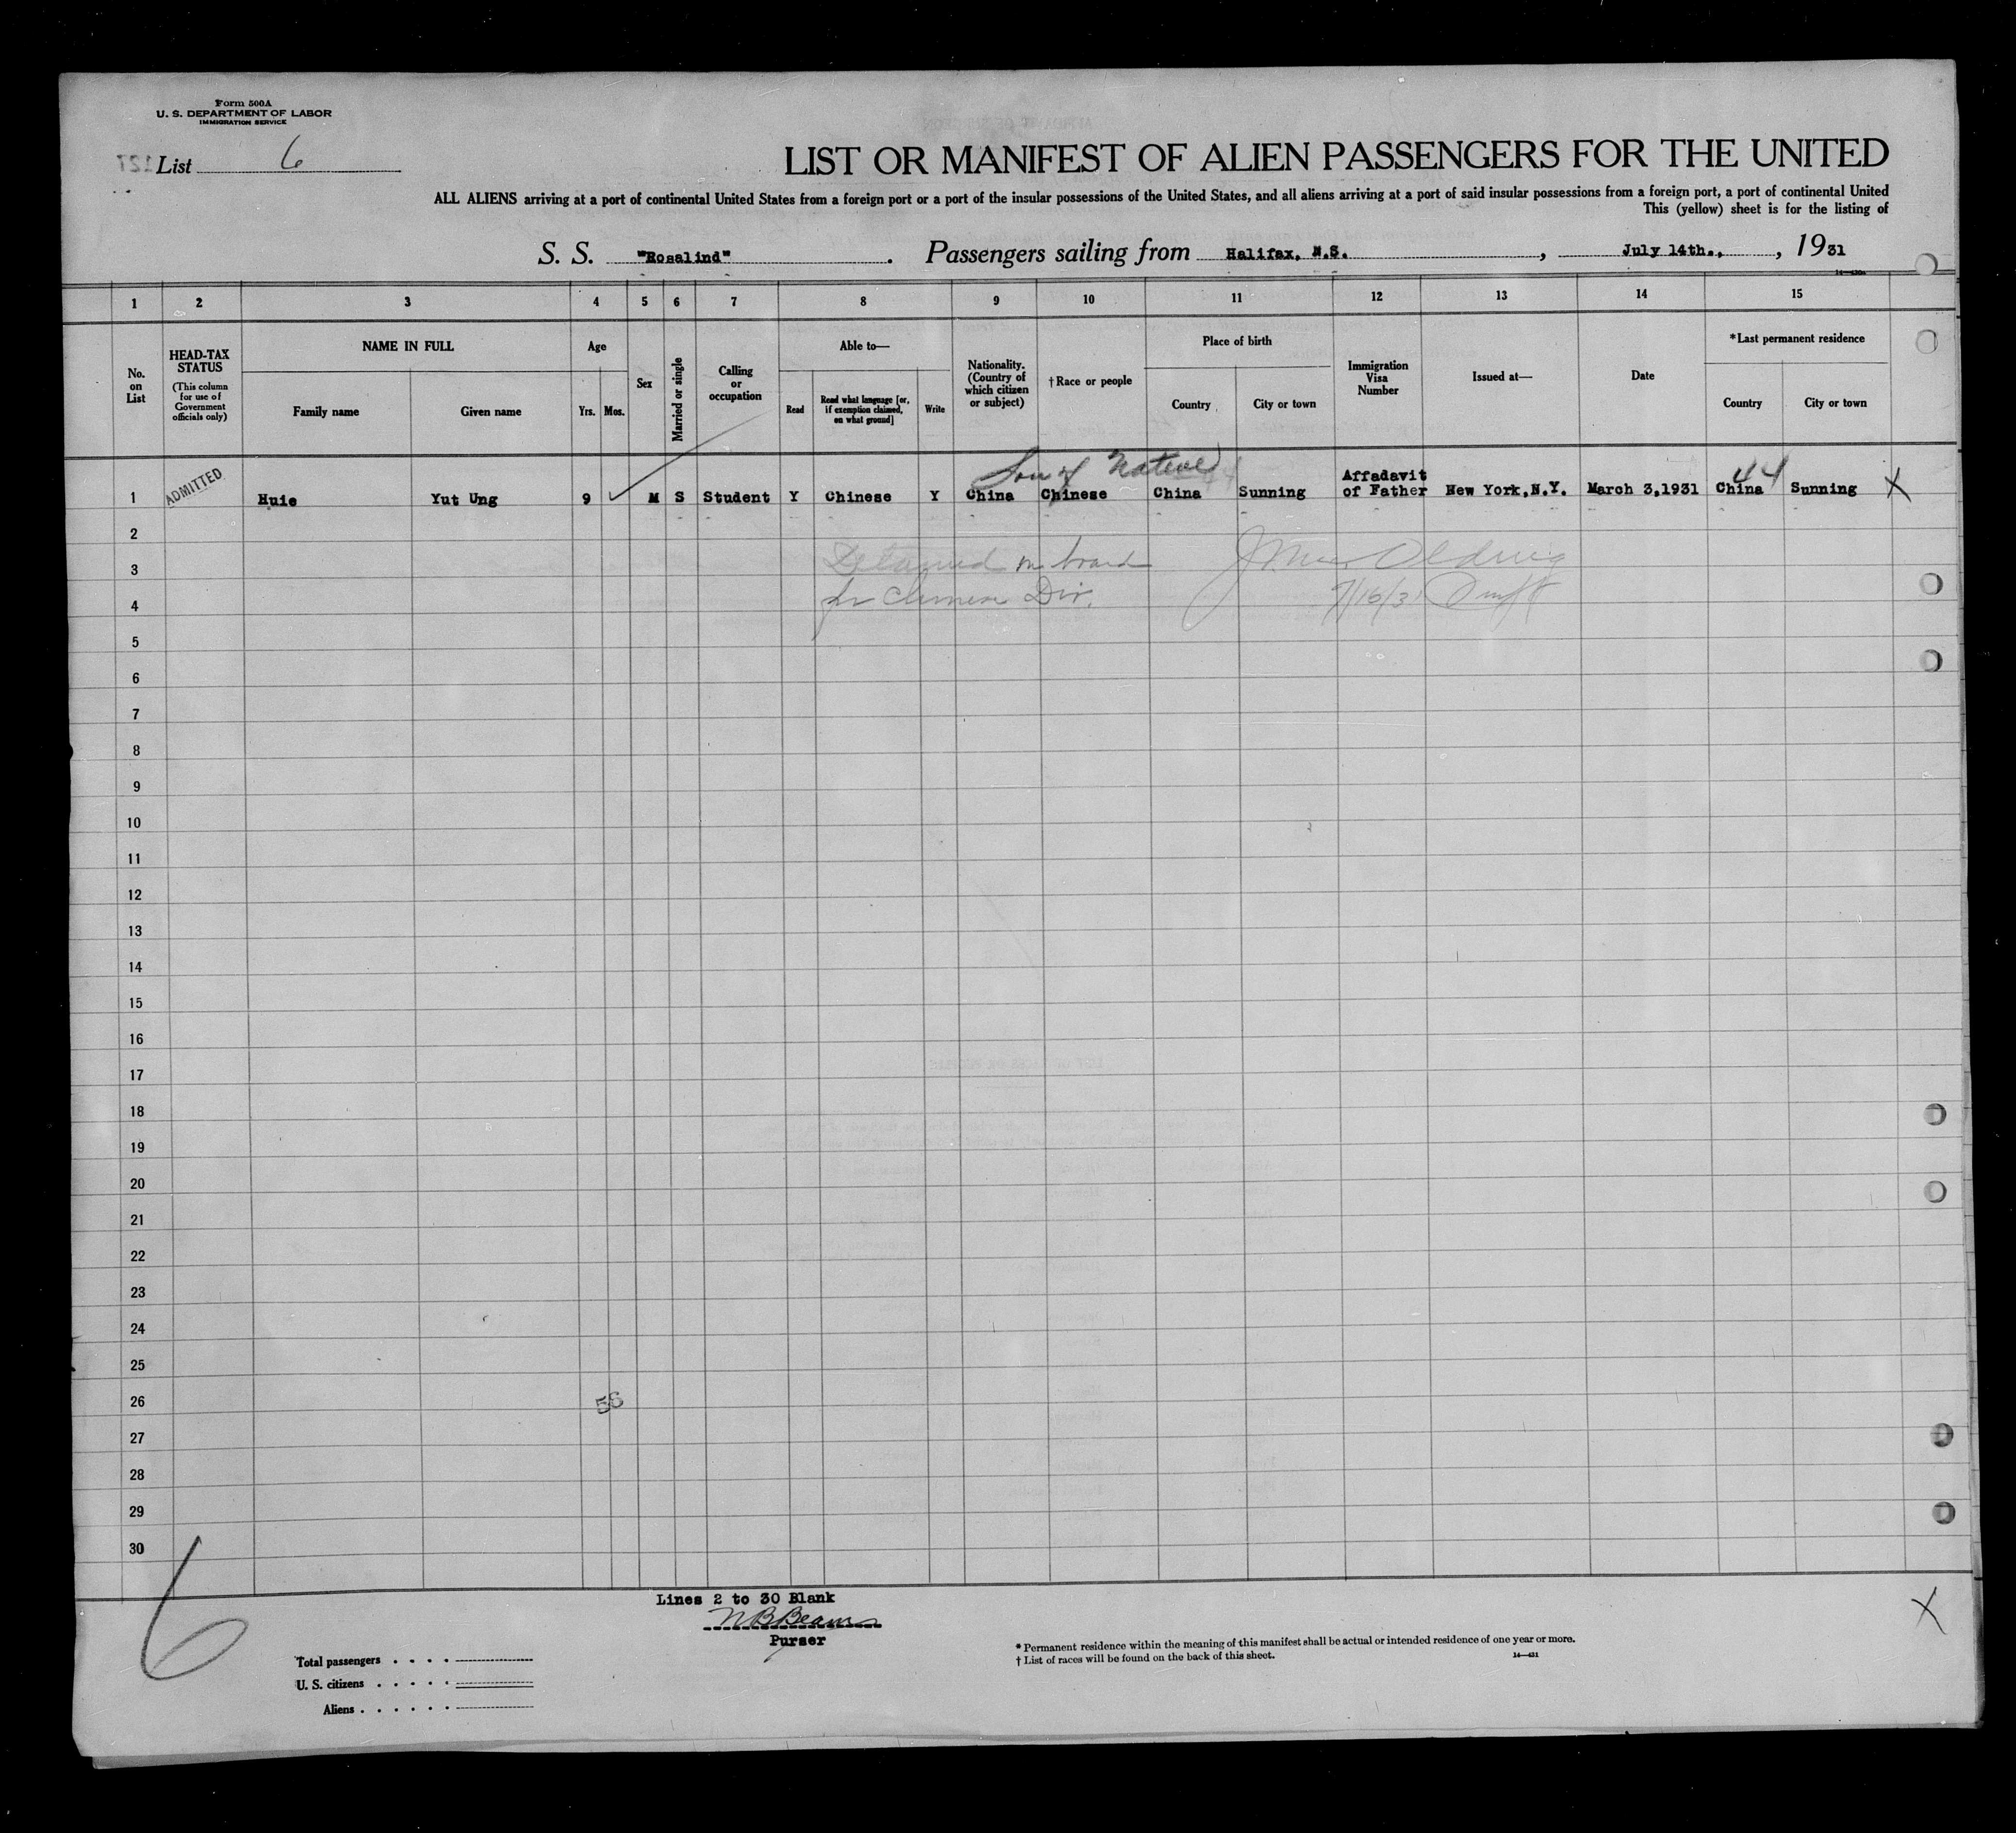 Form 500A
U. S. DEPARTMENT OF LABOR
IMMIGRATION SERVICE
List 6
LIST OR MANIFEST OF ALIEN PASSENGERS FOR THE UNITED
ALL ALIENS arriving at a port of continental United States from a foreign port or a port of the insular possessions of the United States, and all aliens arriving at a port of said insular possessions from a foreign port, a port of continental United
This (yellow) sheet is for the listing of
S. S. "Rosalind". Passengers sailing from Halifax, N.S., July 14th., , 1931
1 2 3 4 5 6 7 8 9 10 11 12 13 14 15
No. on List
HEAD-TAX STATUS
(This column for use of Government officials only)
NAME IN FULL
Family name
Given name
Age
Yrs.
Mos.
Sex
Married or single
Calling or occupation
Able to—
Read
Read what language [or, if exemption claimed, on what ground]
Write
Nationality. (Country of which citizen or subject)
† Race or people
Place of birth
Country
City or town
Immigration Visa Number
Issued at—
Date
*Last permanent residence
Country
City or town
Son of Native
44
1 ADMITTED Huie Yut Ung 9 M S Student Y Chinese Y China Chinese China Sunning Affadavit of Father New York, N.Y. March 3,1931 China Sunning X
2
3 Detained on board
4 for Chinese Div. 7/16/31
5
6
7
8
9
10
11
12
13
14
15
16
17
18
19
20
21
22
23
24
25
26 56
27
28
29
30
6
Lines 2 to 30 Blank
N B Beams
Purser
X
Total passengers . . . .
U. S. citizens . . . . .
Aliens . . . . . .
* Permanent residence within the meaning of this manifest shall be actual or intended residence of one year or more.
† List of races will be found on the back of this sheet.
14—431